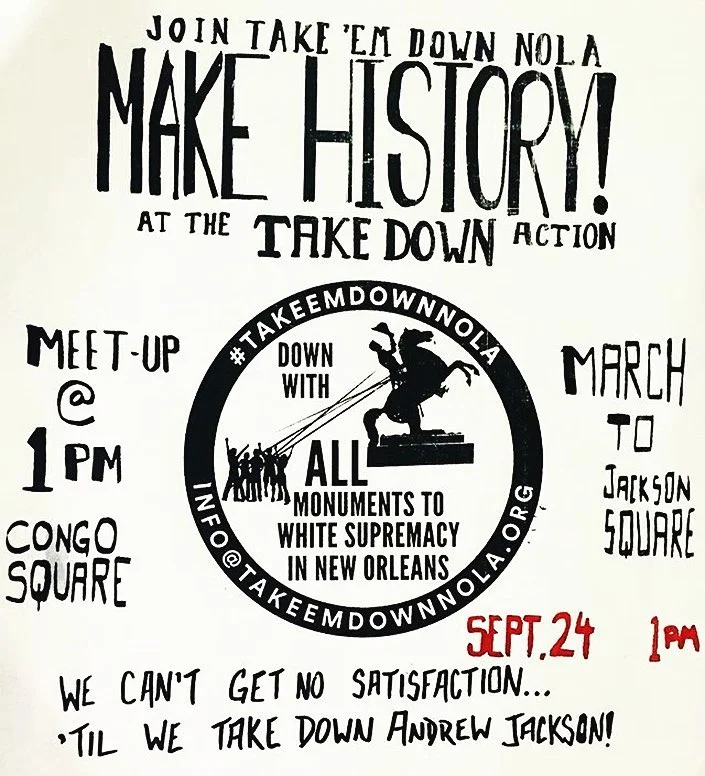 JOIN TAKE 'EM DOWN NOLA
MAKE HISTORY!
AT THE TAKE DOWN ACTION
MEET-UP
@
1 PM
CONGO
SQUARE
#TAKEEMDOWNNOLA
DOWN
WITH
ALL
MONUMENTS TO
WHITE SUPREMACY
IN NEW ORLEANS
INFO@TAKEEMDOWNNOLA.ORG
MARCH
TO
JACKSON
SQUARE
SEPT. 24 1PM
WE CAN'T GET NO SATISFACTION...
'TIL WE TAKE DOWN ANDREW JACKSON!